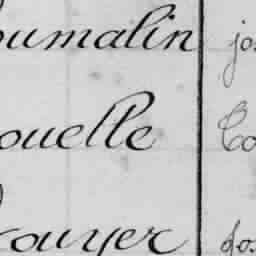 oumalin jo
ouelle Co
rouyer Jos